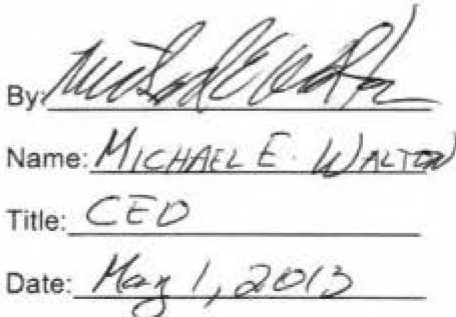 By:
Name: MICHAEL E. WALTON
Title: CEO
Date: May 1, 2013